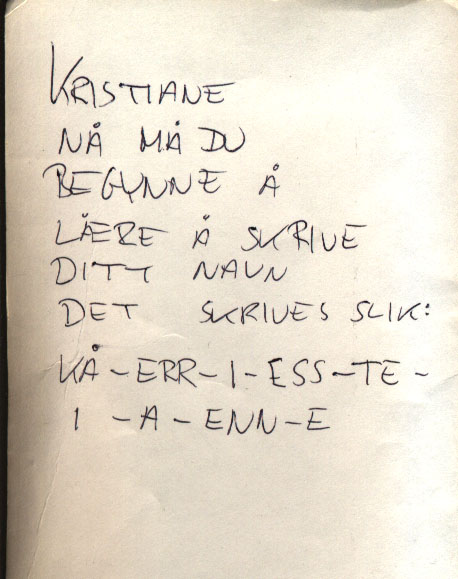 KRISTIANE
NÅ MÅ DU
BEGYNNE Å
LÆRE Å SKRIVE
DITT NAVN
DET SKRIVES SLIK:
KÅ-ERR-I-ESS-TE-
I-A-ENN-E